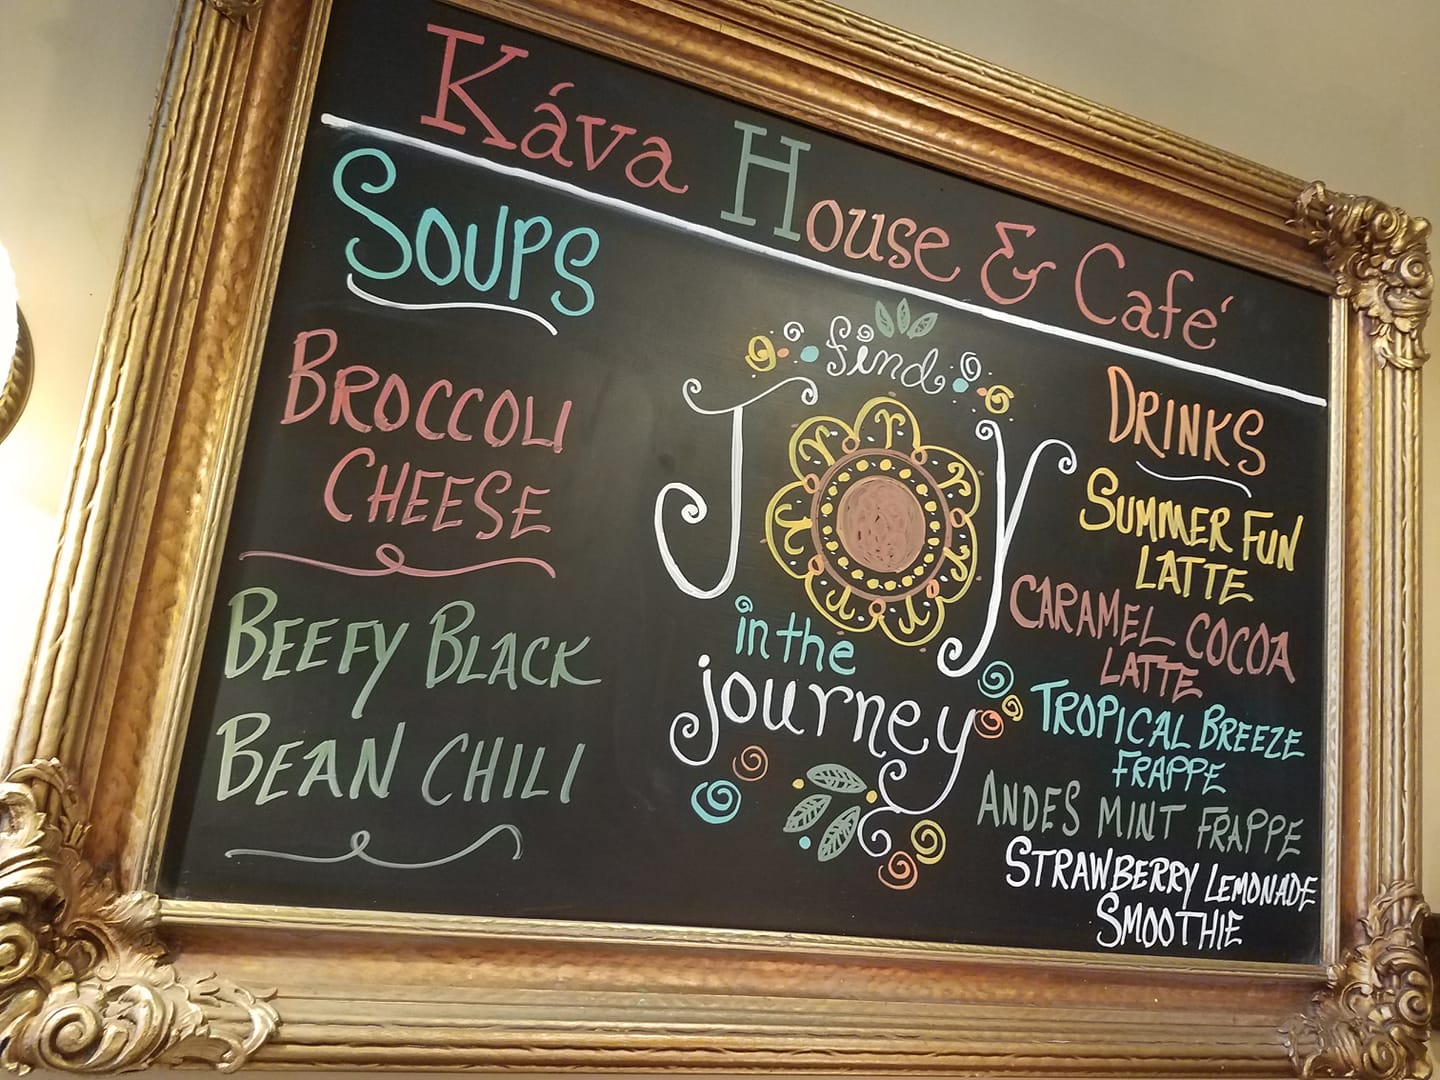 Káva House & Café
SOUPS
BROCCOLI
CHEESE
BEEFY BLACK
BEAN CHILI
find
JOY
in the
journey
DRINKS
SUMMER FUN
LATTE
CARAMEL COCOA
LATTE
TROPICAL BREEZE
FRAPPE
ANDES MINT FRAPPE
STRAWBERRY LEMONADE
SMOOTHIE